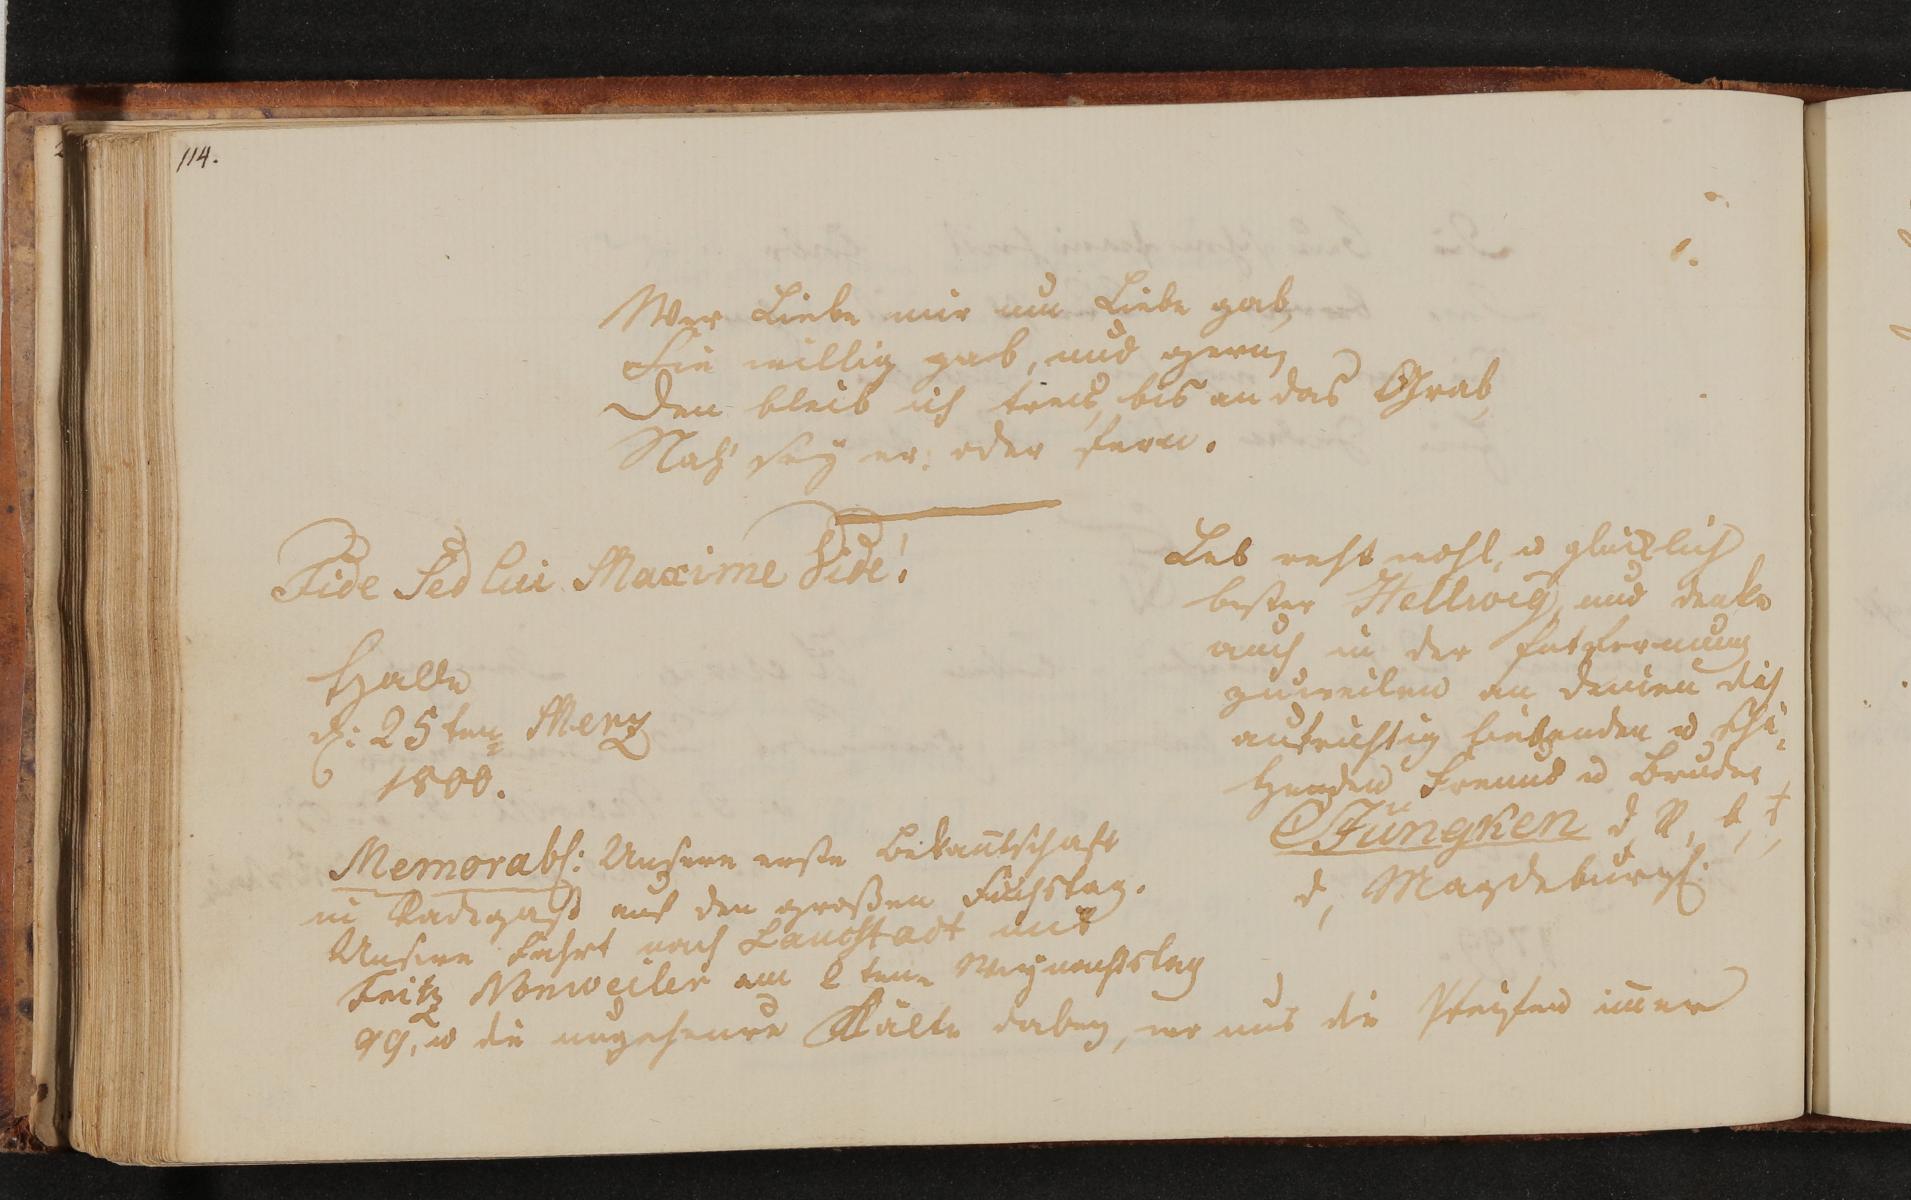 114.
Wer Liebe mir um Liebe gab,
Sie willig gab, und gern,
Dem bleib ich treu, bis an das Grab,
Nah' sey er: oder fern.
Fide Sed Cui Maxime Vide!
Halle
d: 25ten Merz
1800.
Leb recht wohl, u glücklich
bester Hellwig, und denke
auch in der Entfernung
zuweilen an deinen dich
aufrichtig liebenden u schä-
tzenden Freund u Bruder
Jüngken d. R. b.
d, Magdeburg.
Memorabl: Unsere erste Bekantschaft
in Radegast auf den großen Fuchstag.
Unsere Fahrt nach Lauchstädt mit
Fritz Nonweiler am 2 ten Weynachtstag
99, u die ungeheure Kälte dabey, wo uns die Pfeifen immer